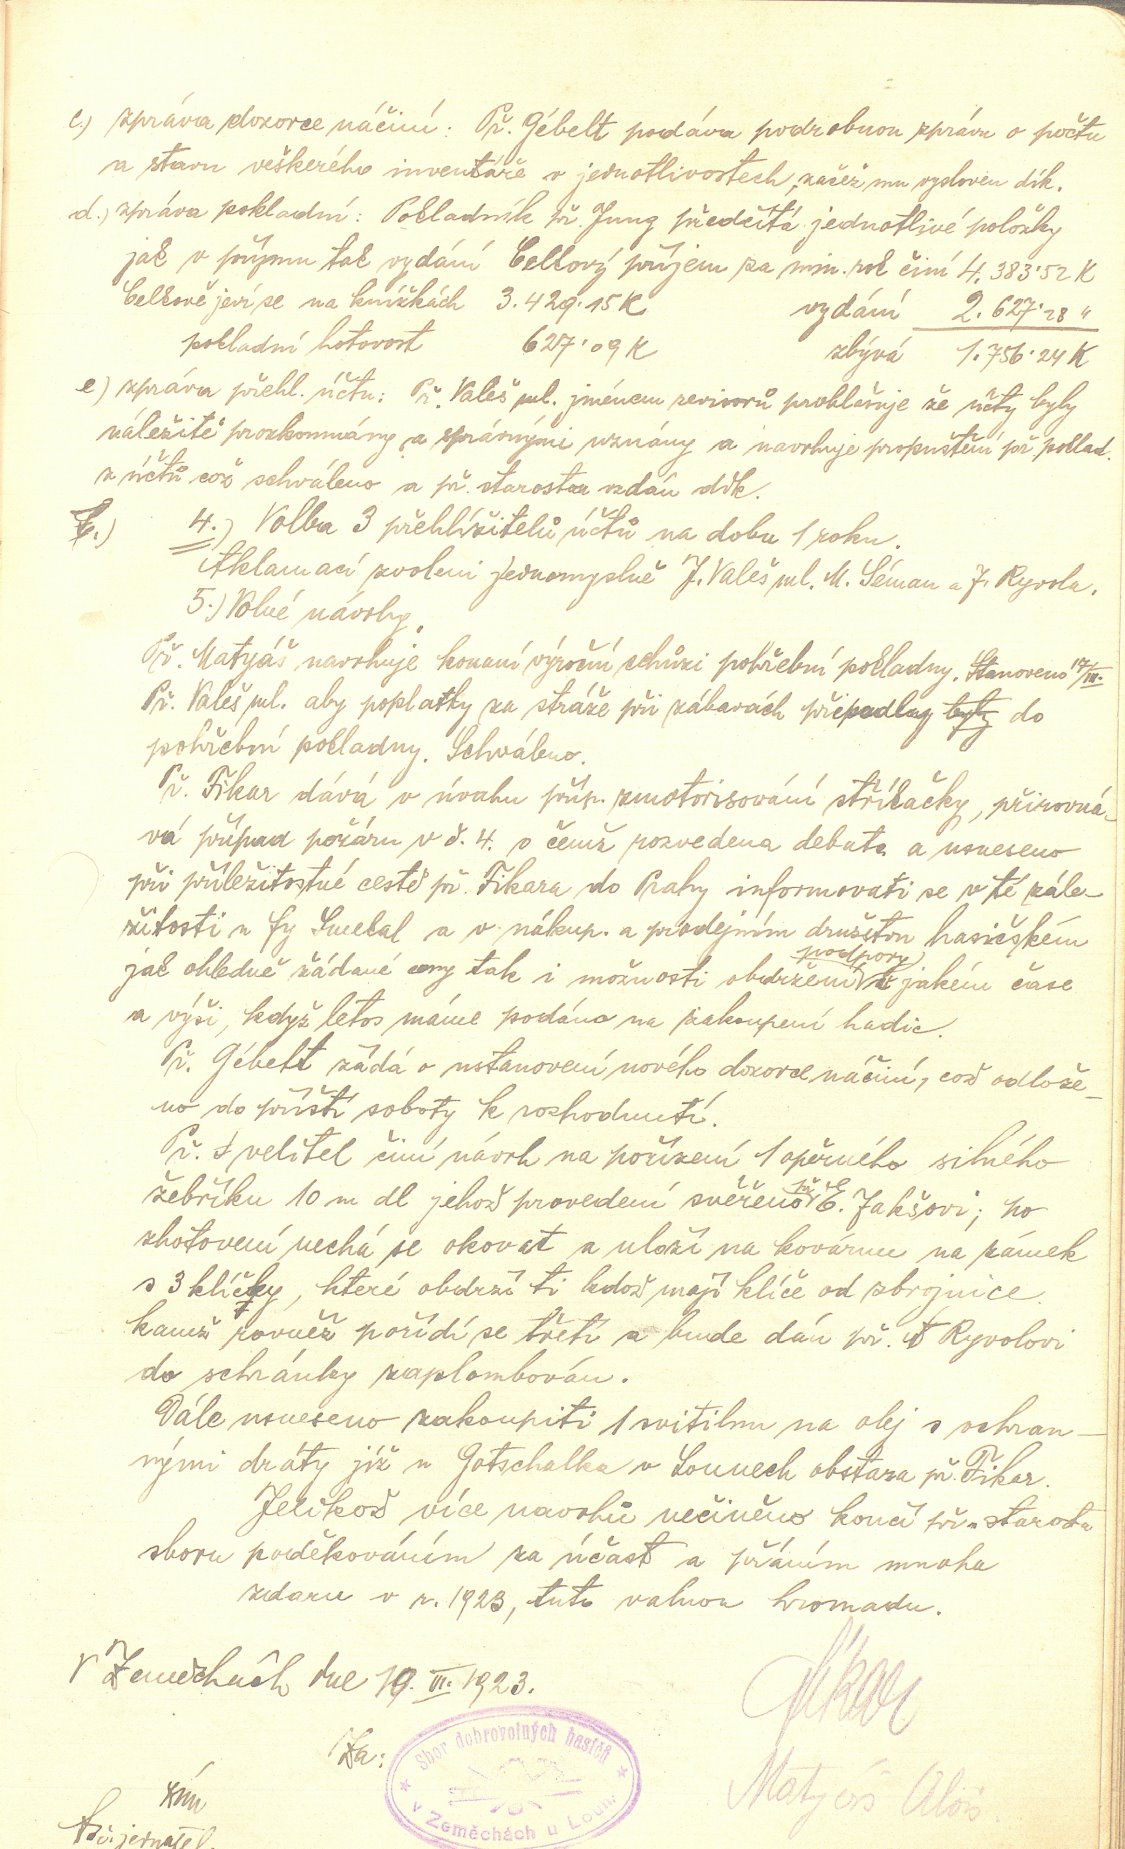 c.) zpráva dozorce náčiní: Př. Gébelt podáva podrobnou zprávu o počtu
a stavu veškerého inventáře v jednotlivostech, začež mu vysloven dík.
d.) zpráva pokladní: Pokladník př. Jung předčítá jednotlivé položky
jak v příjmu tak vydání Celkový příjem za min. rok činí 4.383·52 K
Celkově jeví se na knížkách 3.429·15 K vydání 2.627·28 "
pokladní hotovost 627·09 K zbývá 1.756·24 K
e) zpráva přehl. účtu: Př. Valeš ml. jménem revisorů prohlašuje že účty byly
náležitě prozkoumány a správnými uznány a navrhuje propuštění př poklad.
z účtů což schváleno a př. starostou vzdán dík.
4.) Volba 3 přehlížitelů účtů na dobu 1 roku.
Aklamací zvoleni jednomyslně J. Valeš ml. M. Séman a J. Ryvola.
5.) Volné návrhy.
Př. Matyáš navrhuje konaní výroční schůzi pohřební pokladny. Stanoveno 17/III.
Př. Valeš ml. aby poplatky za stráže při zábavách připadlay byly do
pohřební pokladny. Schváleno.
Př. Fikar dává v úvahu příp. zmotorisování stříkačky, přirovná-
vá případ požáru v č. 4. o čemž rozvedena debata a usneseno
při příležitostné cestě př. Fikara do Prahy informovati se v té zále-
žitosti u fy Smekal a v nákup. a prodejním družstvu hasičském
jak ohledně žádané ceny tak i možnosti obdržení podpory v jakém čase
a výši, když letos máme podáno na zakoupení hadic.
Př. Gébelt žádá o ustanovení nového dozorce náčiní, což odlože-
no do příští soboty k rozhodnutí.
Př. velitel činí návrh na pořízení 1 opěrného silného
žebříku 10 m dl jehož provedení svěřeno př. Č. Jakšovi; po
zhotovení nechá se okovat a uloží na kovárnu na zámek
s 3 klíčky, které obdrží ti kdož mají klíče od zbrojnice
kamž rovněž pořídí se třetí a bude dán př. Ryvolovi
do schránky zaplombován.
Dále usneseno zakoupiti 1 svitilnu na olej s ochran-
nými dráty již u Gotschalka v Lounech obstara př. Fikar.
Jelikož více navrhů nečiněno končí př. starosta
sboru poděkováním za účast a přáním mnoha
zdaru v r. 1923, tuto valnou hromadu.
V Zeměchách dne 19. III. 1923.
Fikar
Za:
Sbor dobrovolných hasičů
v Zeměchách u Loun.
Matyáš Alois
t.č. jednatel.